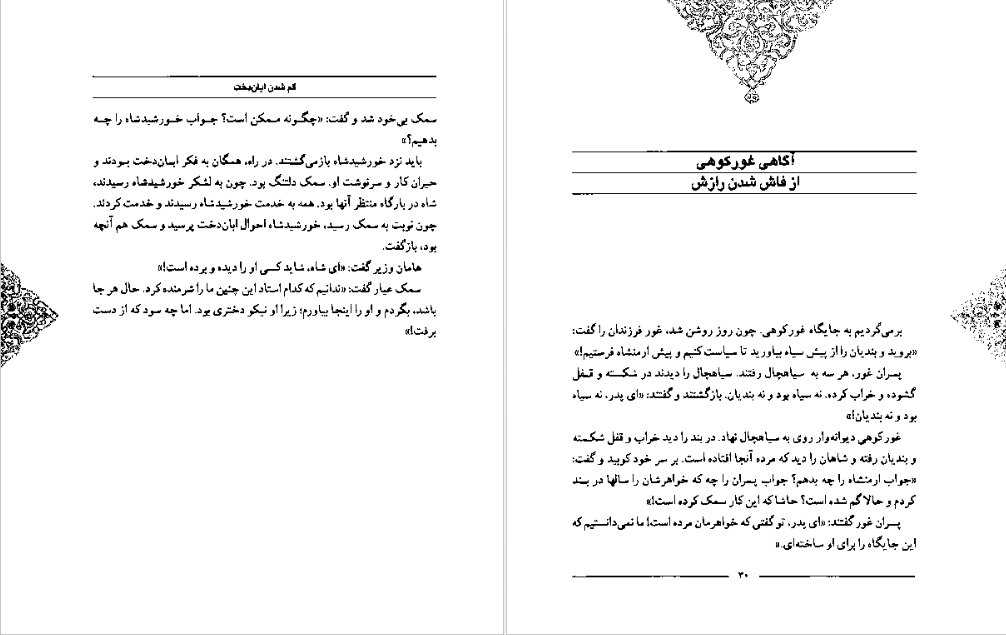 آگاهی غورکوهی
از فاش شدن رازش
برمی‌گردیم به جایگاه غورکوهی. چون روز روشن شد، غور فرزندان را گفت:
«بروید و بندیان را از پیش سیاه بیاورید تا سیاست کنیم و پیش ارمنشاه فرستیم!»
پسران غور، هر سه به سیاهچال رفتند. سیاهچال را دیدند در شکسته و قفل
گشوده و خراب کرده. نه سیاه بود و نه بندیان. بازگشتند و گفتند: «ای پدر، نه سیاه
بود و نه بندیان!»
غورکوهی دیوانه‌وار روی به سیاهچال نهاد. در بند را دید خراب و قفل شکسته
و بندیان رفته و شاهان را دید که مرده آنجا افتاده است. بر سر خود کوبید و گفت:
«جواب ارمنشاه را چه بدهم؟ جواب پسران را چه که خواهرشان را سالها در بند
کردم و حالا گم شده است؟ حاشا که این کار سمک کرده است!»
پسران غور گفتند: «ای پدر، تو گفتی که خواهرمان مرده است! ما نمی‌دانستیم که
این جایگاه را برای او ساخته‌ای.»
۳۰
گم شدن ابان‌دخت
سمک بی‌خود شد و گفت: «چگونه ممکن است؟ جواب خورشیدشاه را چه
بدهیم؟»
باید نزد خورشیدشاه بازمی‌گشتند. در راه، همگان به فکر ابان‌دخت بودند و
حیران کار و سرنوشت او. سمک دلتنگ بود. چون به لشکر خورشیدشاه رسیدند،
شاه در بارگاه منتظر آنها بود. همه به خدمت خورشیدشاه رسیدند و خدمت کردند.
چون نوبت به سمک رسید، خورشیدشاه احوال ابان‌دخت پرسید و سمک هم آنچه
بود، بازگفت.
هامان وزیر گفت: «ای شاه، شاید کسی او را دیده و برده است!»
سمک عیار گفت: «ندانیم که کدام استاد این چنین ما را شرمنده کرد. حال هر جا
باشد، بگردم و او را اینجا بیاورم؛ زیرا او نیکو دختری بود. اما چه سود که از دست
برفت!»